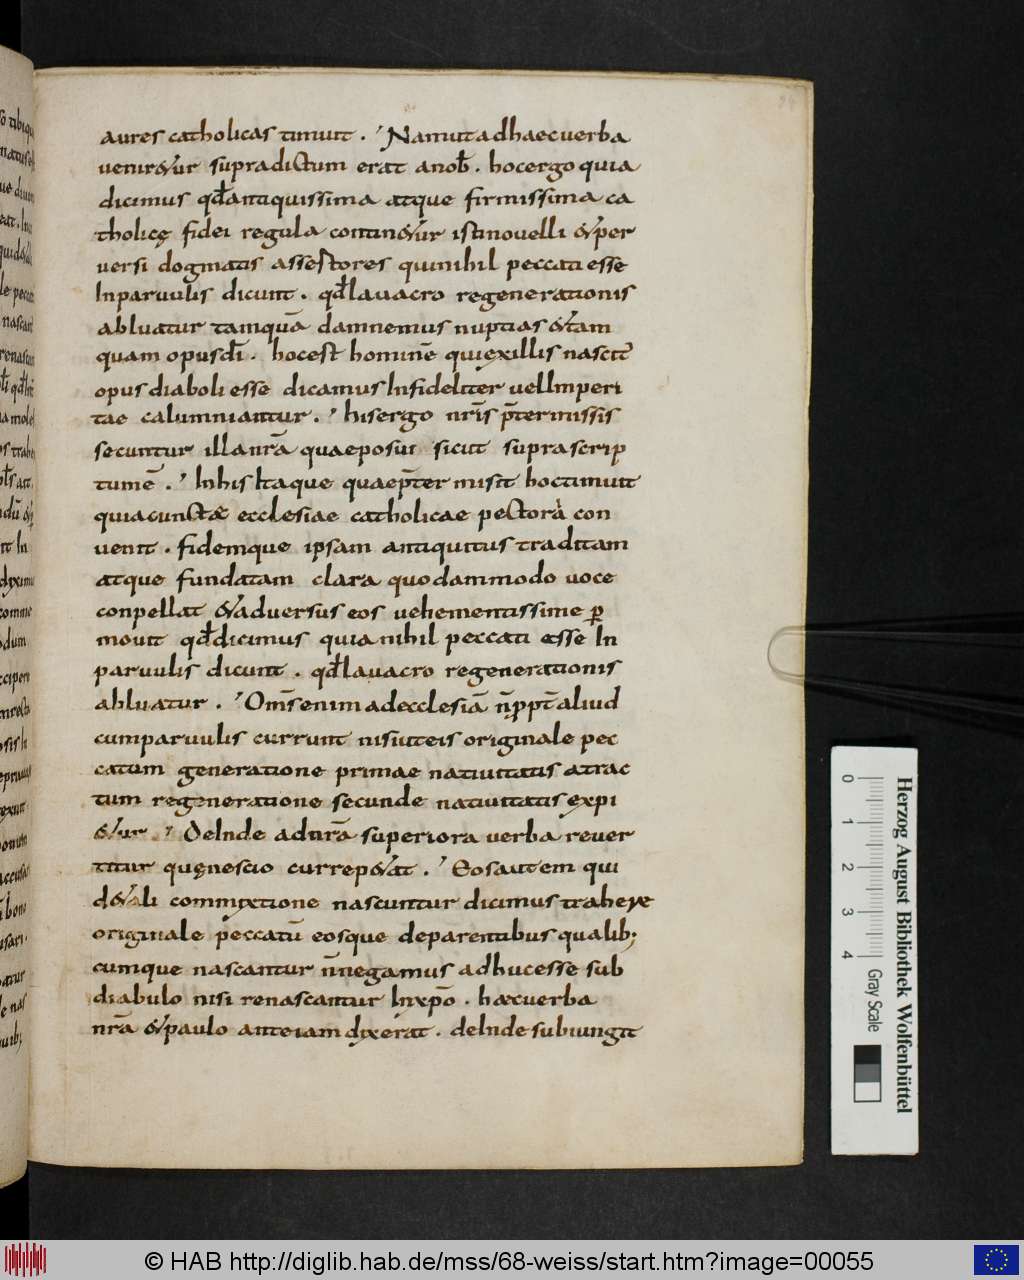 aures catholicas timuit. Nam ut ad haec uerba
uenir&ur supra dictum erat a nob̄. hoc ergo quia
dicimus qđ antiquissima atque firmissima ca
tholicę fidei regula contin&ur isti nouelli & per
uersi dogmatis assertores qui nihil peccati esse
In paruulis dicunt. qđ lauacro regenerationis
abluatur tamquā damnemus nuptias & tam
quam opus dī. hoc est hominē qui ex illis nascit̄
opus diaboli esse dicamus Infideliter uel Imperi
tae calumniantur. his ergo nrīs p̄termissis
secuntur illa nrā quae posui sicut supra scrip
tum ē. In his Itaque quae p̄termisit hoc timuit
quia cunctae ecclesiae catholicae pectora con
uenit. fidemque ipsam antiquitus traditam
atque fundatam clara quodammodo uoce
conpellat & aduersus eos uehementissime ꝑ
mouit qđ dicimus quia nihil peccati esse In
paruulis dicunt. qđ lauacro regenerationis
abluatur. Om̄s enim ad ecclesiā n̄ ꝓpt̄ aliud
cum paruulis currunt nisi ut eis originale pec
catum generatione primae natiuitatis atrac
tum regeneratione secunde natiuitatis expi
&ur. DeInde ad nrā superiora uerba reuer
titur quę nescio cur rep&at. Eos autem qui
d& ali commixtione nascuntur dicimus trahere
originale peccatū eosque de parentibus qualib;
cumque nascantur n̄ negamus adhuc esse sub
diabulo nisi renascantur In xpō. haec uerba
nrā & paulo ante iam dixerat. deInde subiungit
Herzog August Bibliothek Wolfenbüttel
0 1 2 3 4 Gray Scale
© HAB http://diglib.hab.de/mss/68-weiss/start.htm?image=00055